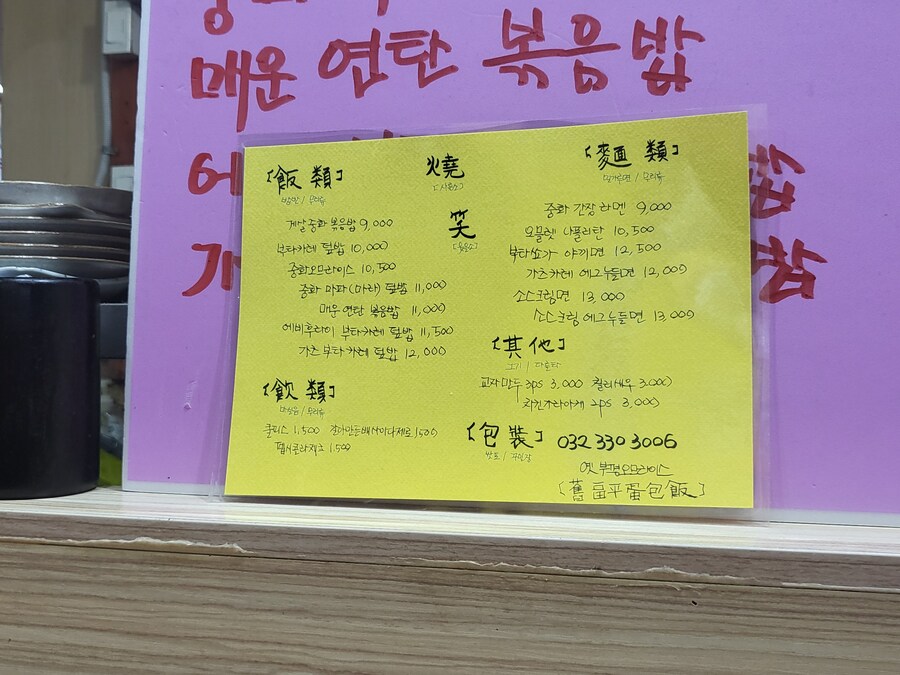 매운 연탄 볶음밥
[飯 類]
게살 중화 볶음밥 9,000
부타카레 덮밥 10,000
중화오므라이스 10,500
중화 마파(마라) 덮밥 11,000
매운 연탄 볶음밥 11,000
에비후라이 부타카레 덮밥 11,500
가츠 부타카레 덮밥 12,000
[飮 類]
쿨피스 1,500 갈아만든배 사이다제로 1,500
펩시콜라제로 1,500
燒
笑
[麵 類]
중화 간장 라멘 9,000
오믈렛 나폴리탄 10,500
부타쇼가 야끼면 12,500
가츠카레 에그누들면 12,000
소스크림면 13,000
소스크림 에그누들면 13,000
[其 他]
교자만두 3ps 3,000 칠리새우 3,000
치킨가라아게 2ps 3,000
[包 裝] 032 330 3006
옛 부평오므라이스
[舊 富平蛋包飯]